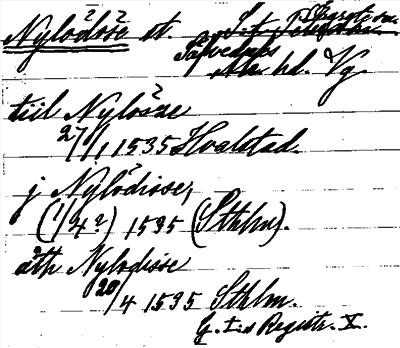 Nylödöse st.
Sävedals
hd. Vg.
till Nylösze
27/1 1535 Hvalstad
j Nylödisse,
(1/4?) 1535 (Sthlm).
åth Nylodisse
20/4 1535 Sthlm.
G. I:s Registr. X.